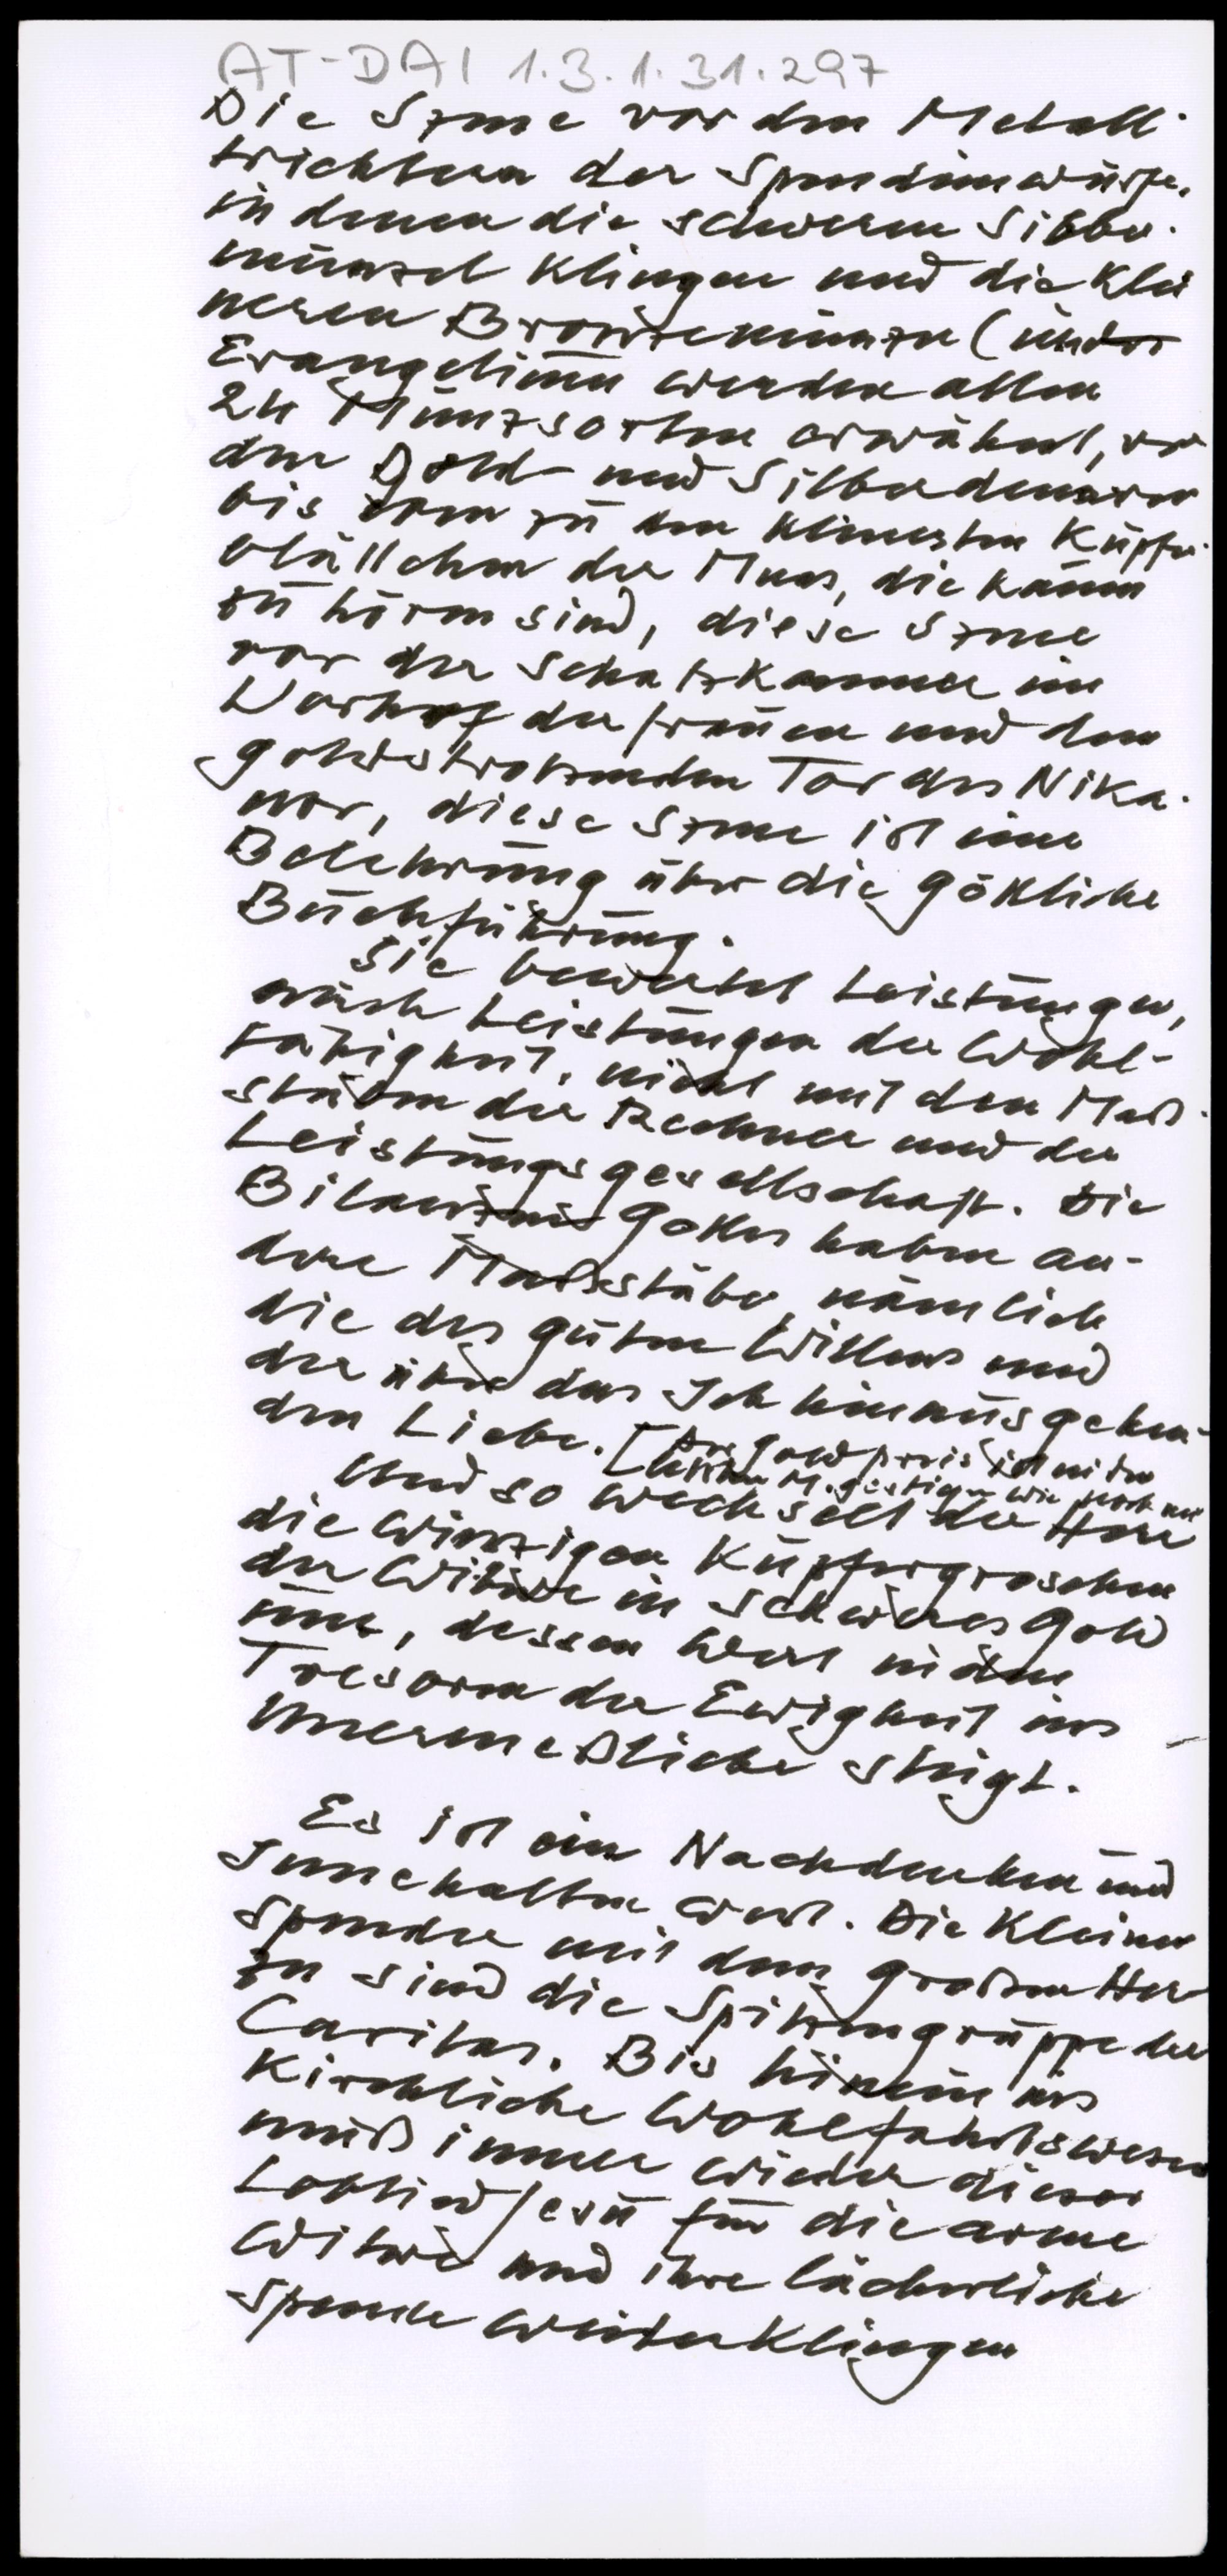 AT-DAI 1.3.1.31.297
Die Szene vor den Metall-
trichtern der Spendeneinwürfe,
in denen die schweren Silber-
münzen klingen und die klei
neren Bronzemünzen (in den
Evangelien werden allen
24 Münzsorten erwähnt, von
den Gold- und Silberdenaren
bis zu den kleinsten Kupfer-
blättchen der Münz, die kaum
zu hören sind, diese Szene
vor der Schatzkammer im
Vorhof der Frauen und dem
goldstrotzenden Tor des Nika-
nor, diese Szene ist eine
Belehrung über die göttliche
Buchführung.
Sie bewertet Leistungen,
auch Leistungen der Wohl-
tätigkeit, nicht mit den Maß-
stäben der Rechner und der
Leistungsgesellschaft. Die
Bilanzen Gottes haben an-
dere Maßstäbe, nämlich
die des guten Willens und
der über das Ich hinausgehen-
den Liebe. [Der Goldpreis ist in den
letzten M. gestiegen wie noch nie
Und so wechselt der Herr
die winzigen Kupfergroschen
der Witwe in schweres Gold
um, dessen Wert in den
Tresoren der Ewigkeit ins
Unermeßliche steigt.
Es ist ein Nachdenken und
Innehalten wert. Die kleinen
Spender mit dem großen Her
zen sind die Spitzengruppe der
Caritas. Bis hinein ins
kirchliche Wohlfahrtswesen
muß immer wieder dieses
Loblied Jesu für die arme
Witwe und ihre lächerliche
Spende weiterklingen